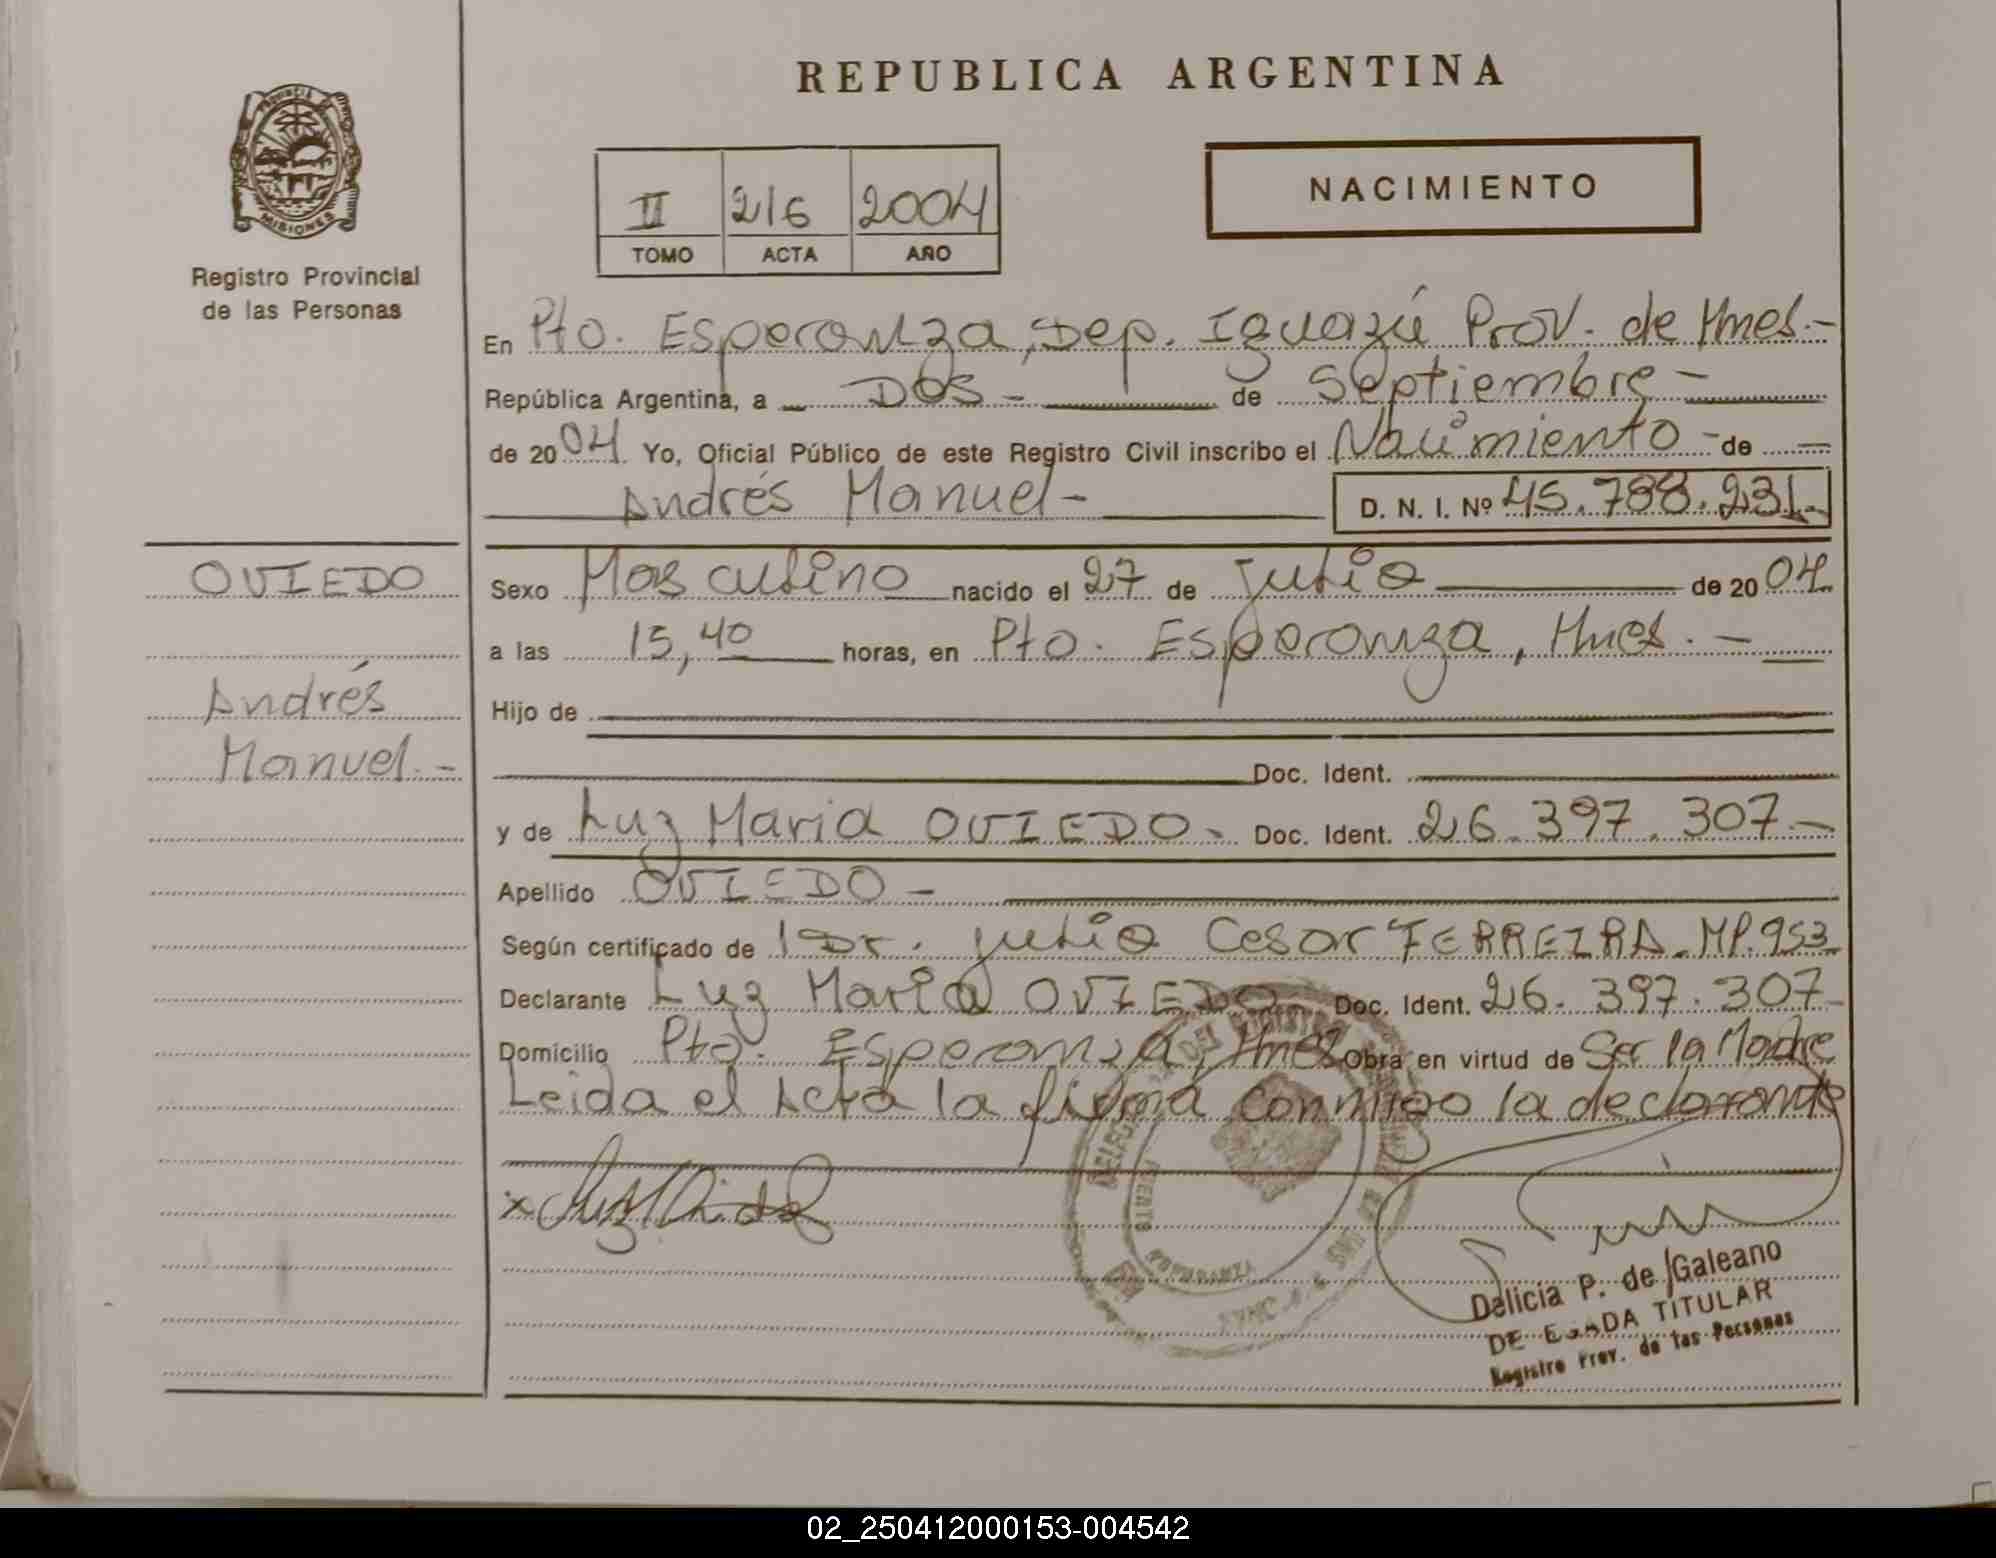 REPUBLICA ARGENTINA
PROVINCIA DE
MISIONES
Registro Provincial
de las Personas
II 216 2004
TOMO ACTA AÑO
NACIMIENTO
En Pto. Esperanza, Dep. Iguazú Prov. de Mnes.-
República Argentina, a Dos - de Septiembre -
de 2004. Yo, Oficial Público de este Registro Civil inscribo el Nacimiento - de
Andrés Manuel - D. N. I. Nº 45.788.231.-
OVIEDO
Andrés
Manuel.-
Sexo Masculino nacido el 27 de julio de 2004
a las 15,40 horas, en Pto. Esperanza, Mnes. -
Hijo de
Doc. Ident.
y de Luz Maria OVIEDO - Doc. Ident. 26.397.307.-
Apellido OVIEDO -
Según certificado de Dr. julio Cesar FERREIRA. MP.953
Declarante Luz Maria OVIEDO Doc. Ident. 26.397.307-
Domicilio Pto. Esperanza, Mnes Obra en virtud de Ser la Madre
Leida el Acta la firma conmigo la declarante
x
Delicia P. de Galeano
TITULAR
Registro Prov. de las Personas
02_250412000153-004542